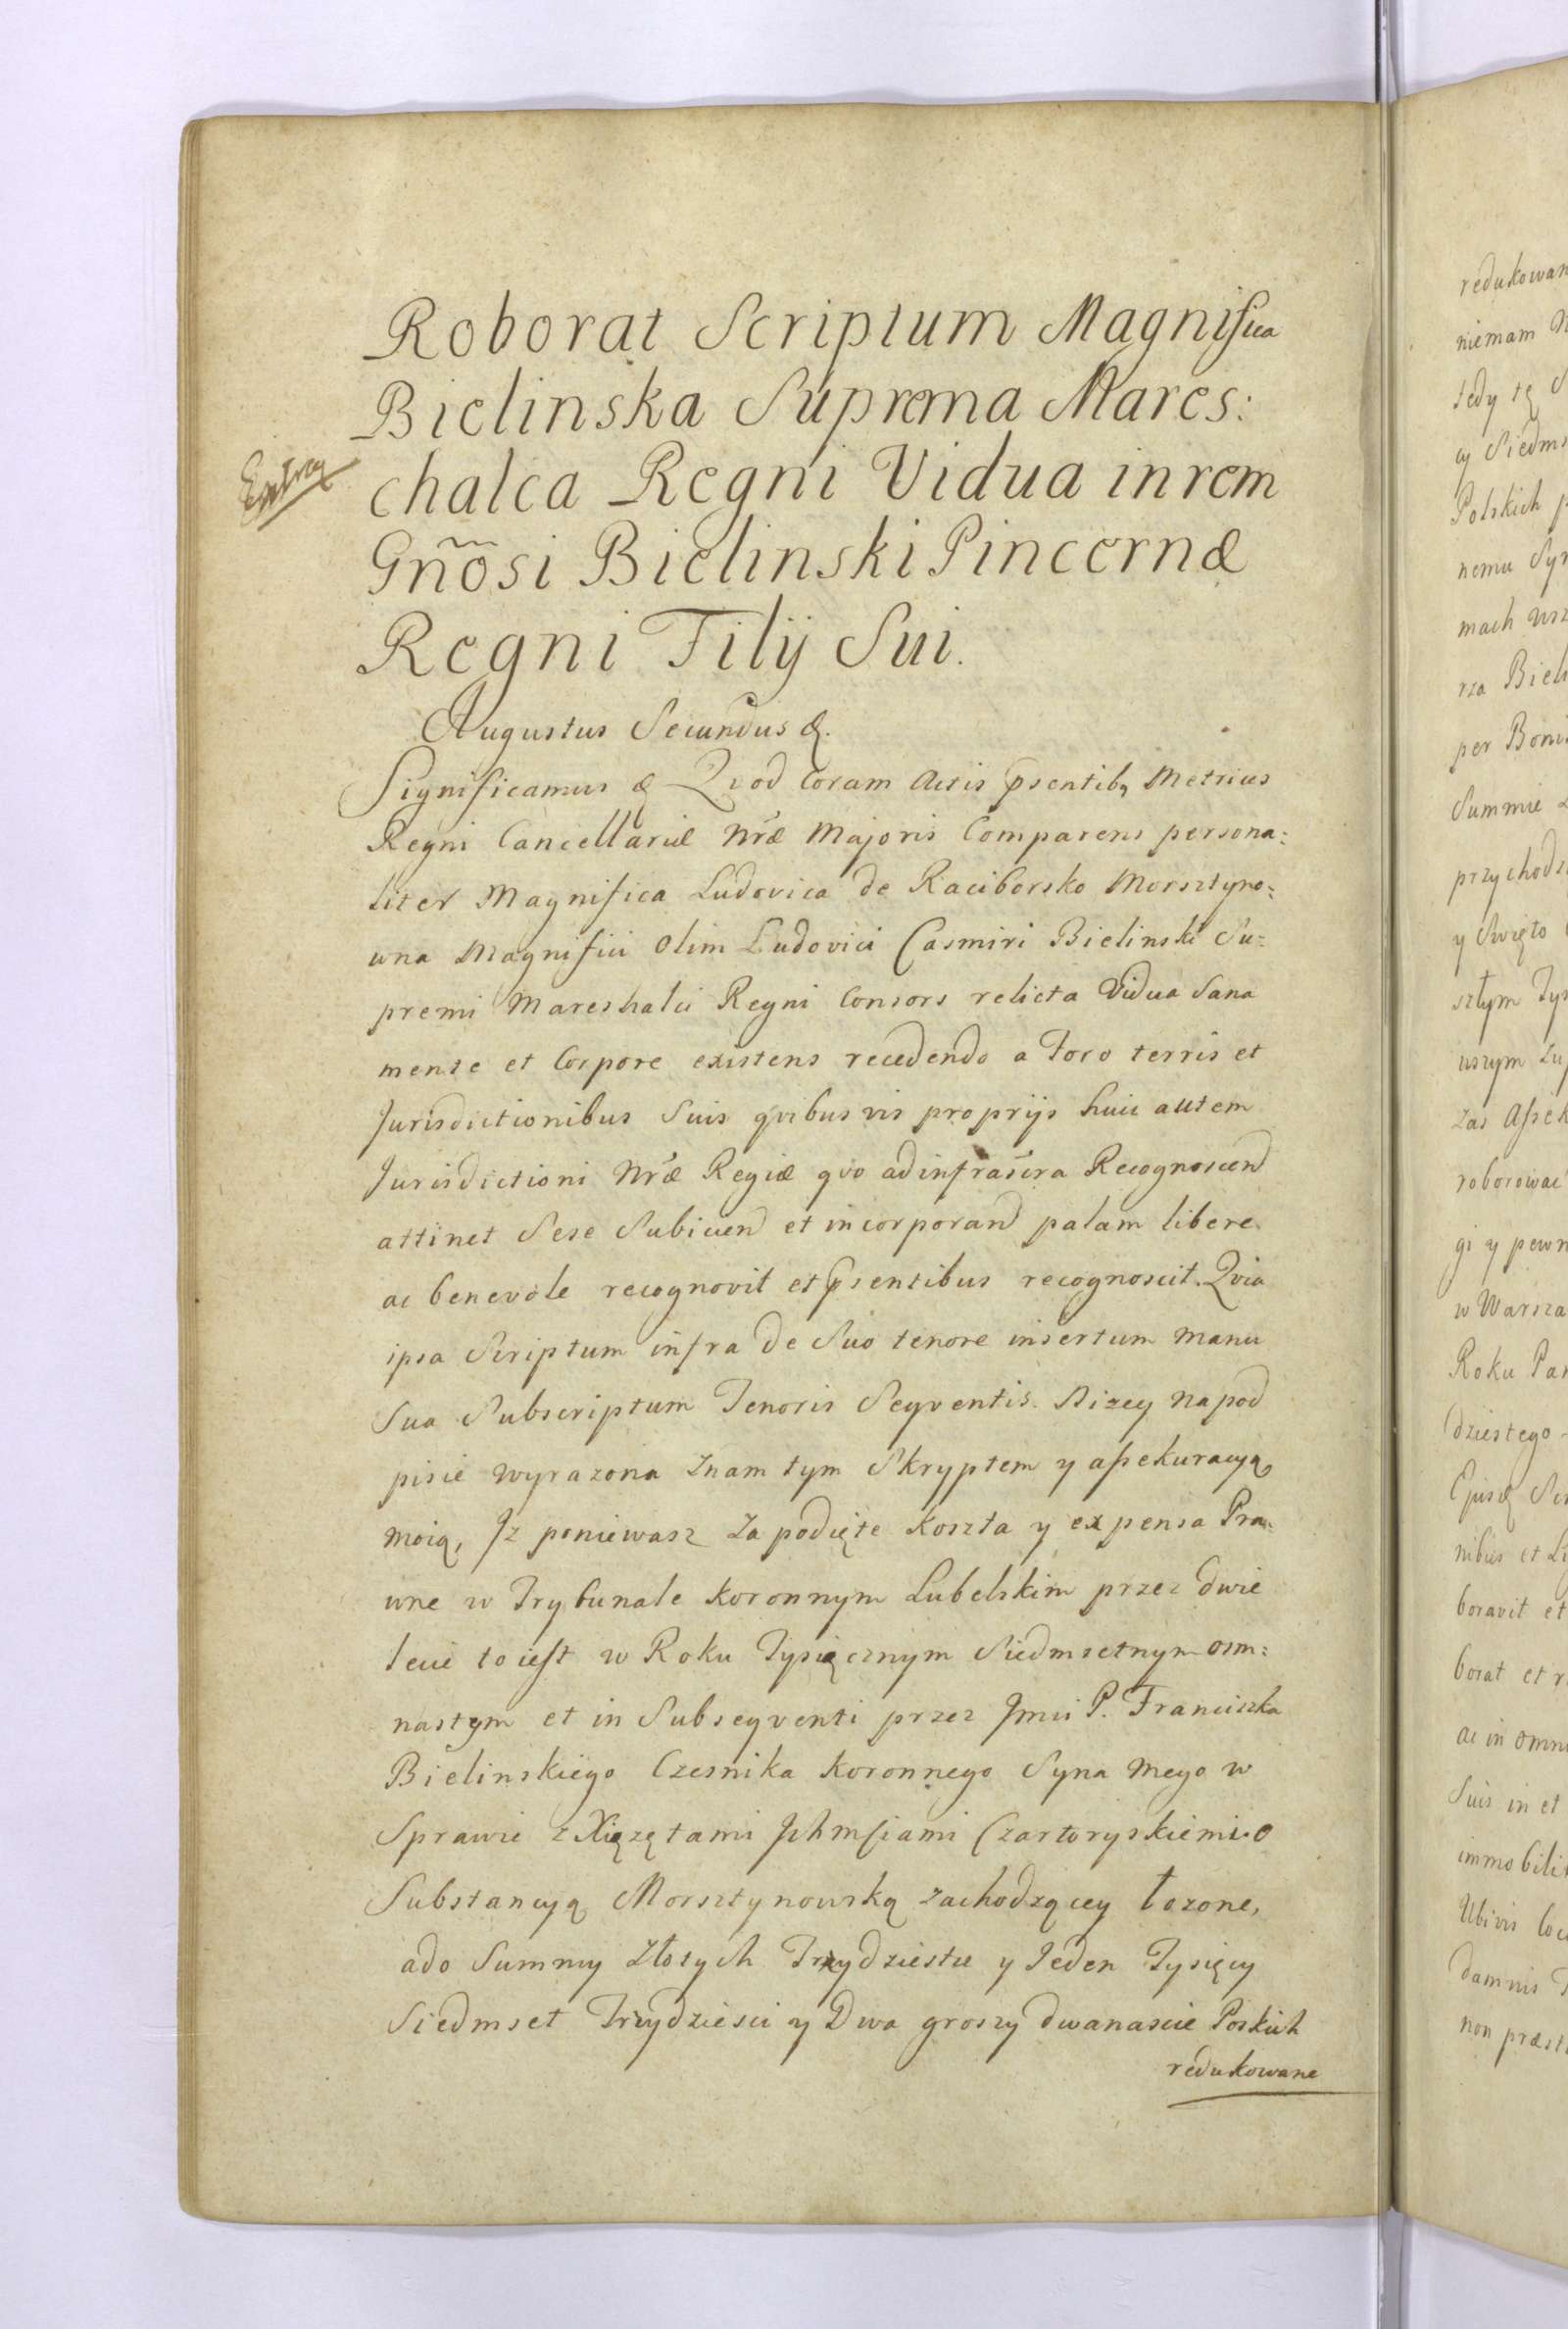 Roborat Scriptum Magnifica
Bielinska Suprema Mares:
chalca Regni Vidua in rem
Gñosi Bielinski Pincernæ
Regni Filij Sui.
Augustus Secundus &.
Significamus & Qvod Coram Actis p̃sentibq Metrices
Regni Cancellariæ Nr̃æ Majoris Comparens persona:
liter Magnifica Ludovica de Raciborsko Morsztyno:
wna Magnifici Olim Ludovici Casmiri Bielinski Su:
premi Mareshalci Regni Consors relicta Vidua Sana
mente et Corpore existens recedendo a Foro terris et
Jurisdictionibus Suis qvibusvis proprijs huic autem
Jurisdictioni Nr̃æ Regiæ qvo ad infrascra Recognoscend
attinet Sese Subiicend et incorporand palam libere
ac benevole recognovit et p̃sentibus recognoscit. Qvia
ipsa Scriptum infra de Suo tenore insertum manu
Sua Subscriptum Tenoris Seqventis. Nizey na pod
pisie wyrazona Znam tym Skryptem y assekuracyą
moią, Iz poniewasz Za podięte Koszta y expensa Pra:
wne w Trybunale Koronnym Lubelskim przez dwie
lecie to iest w Roku Tysiącznym Siedmsetnym osm:
nastym et in Subseqventi przez Jmci P. Franciszka
Bielinskiego Czesnika Koronnego Syna Mego w
Sprawie z Xiązętami Jchmsciami Czartoryskiemi o
Substancyą Morsztynowską Zachodzącey łozone,
ado Summy Złotych Trzydziestu y Jeden Tysięcy
Siedmset Trzydziesci y Dwa groszy dwanascie Poskich
redukowane
redukowan
niemam
tedy tę S
cy Siedms
Polskich p
nemu Syn
mach wsz
rza Bieli
per Boni
Summie
przychodz
y Swięto
sztym Tys
wszym Lu
zas Assek
roborowac
gi y pewn
w Warsza
Roku Pan
dziestego
nibus et Li
boravit et
borat et r
ac in omni
Suis in et
immobilib
Ubivis loc
damnis
non præsti